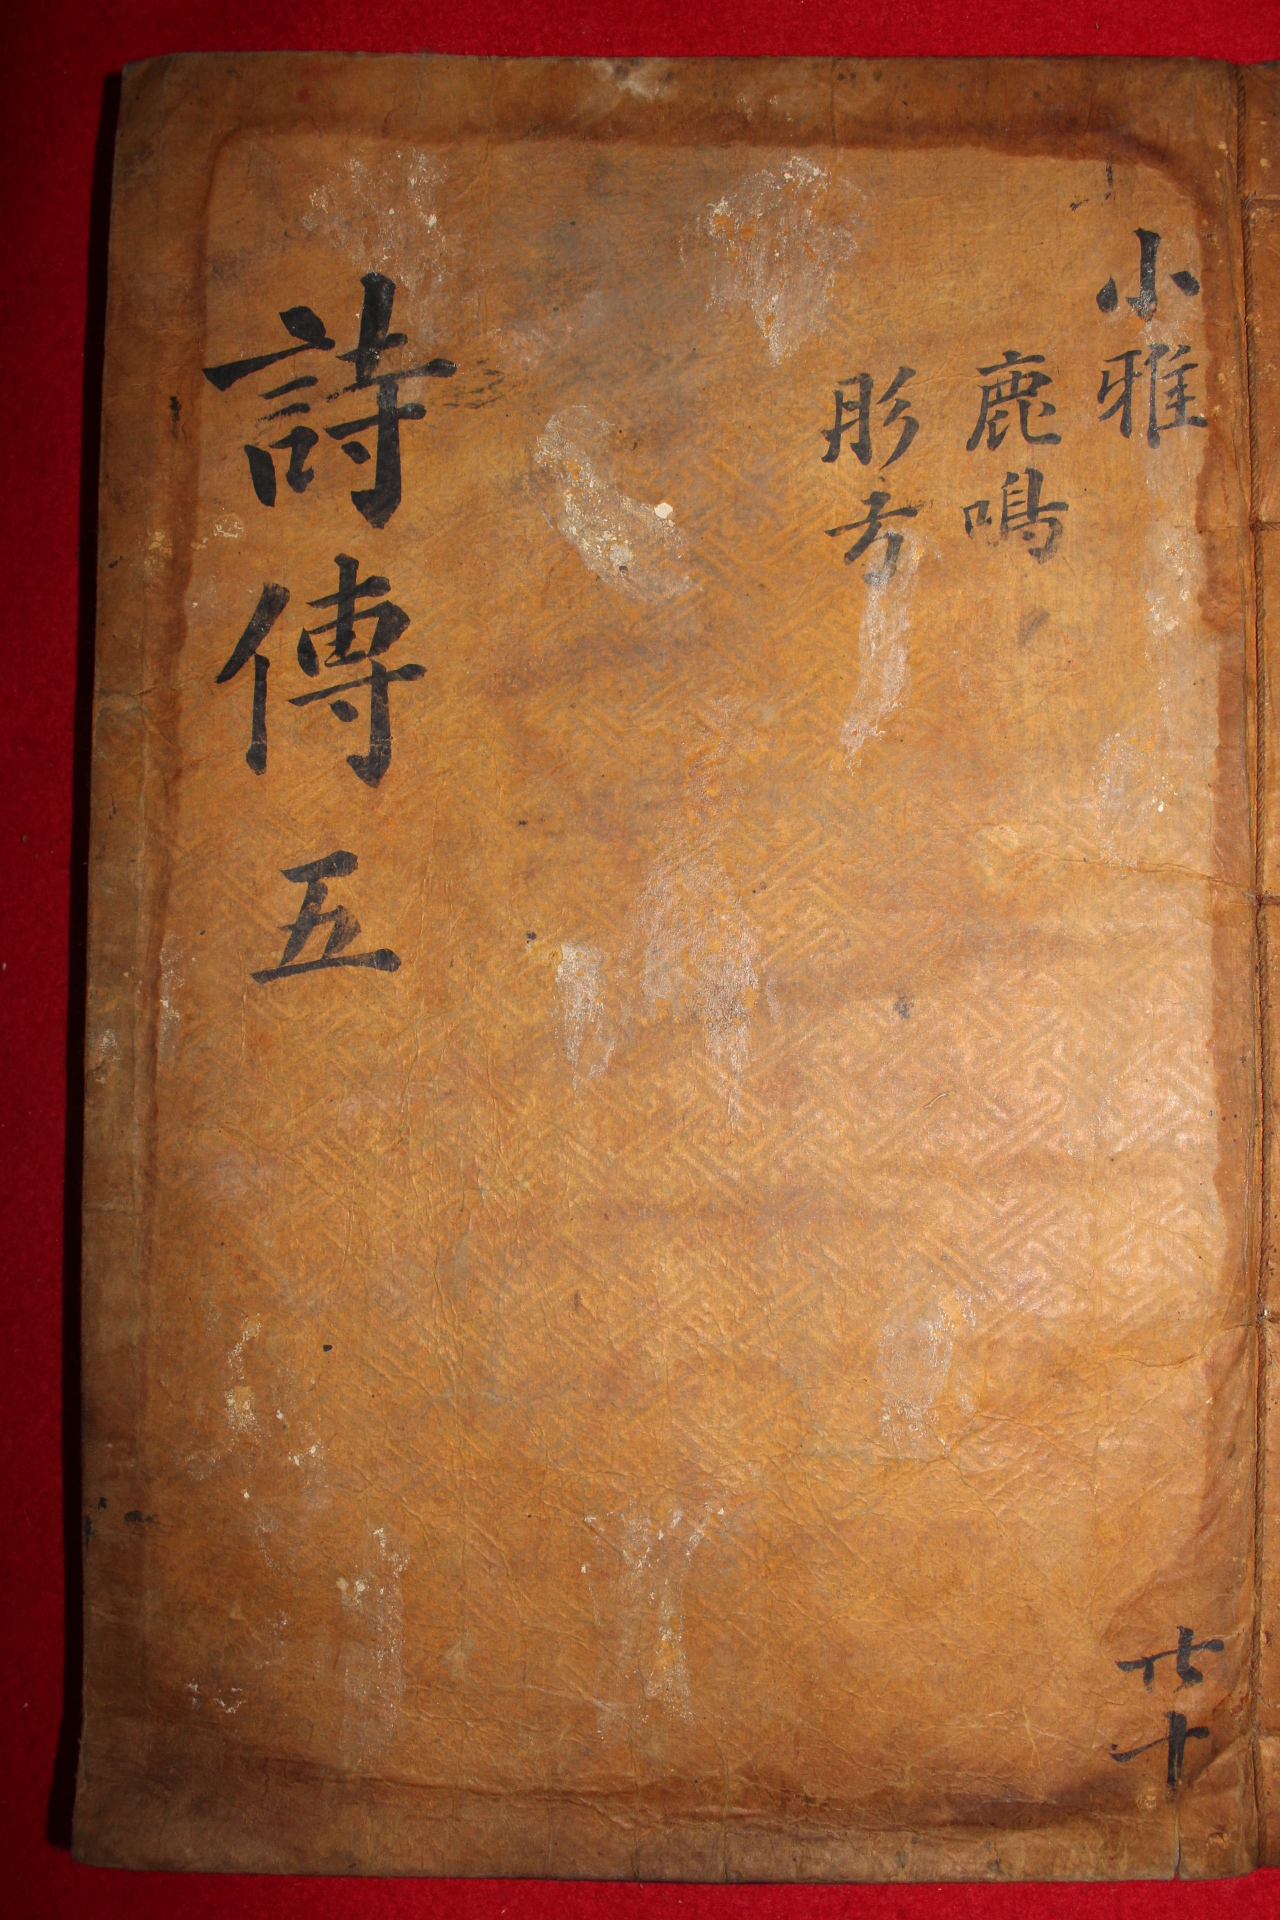 小雅
鹿鳴
彤弓
詩傳 五
共十